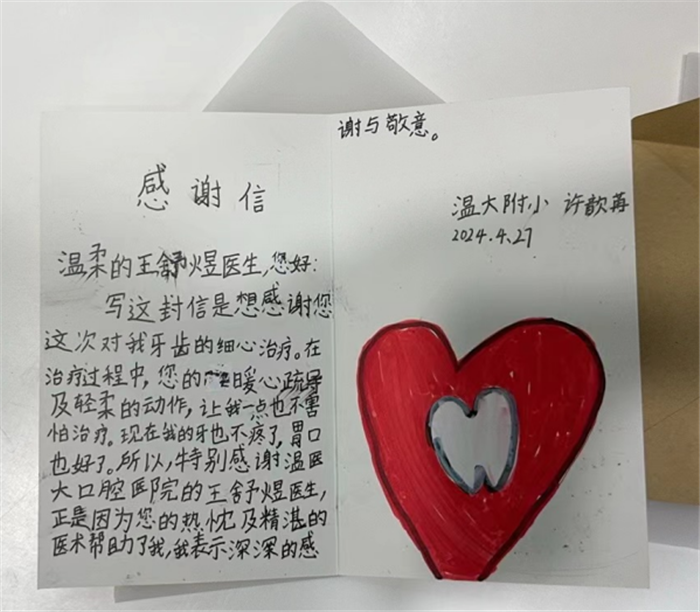 感谢信
温柔的王舒煜医生,您好:
写这封信是想感谢您
这次对我牙齿的细心治疗。在
治疗过程中,您的暖心疏导
及轻柔的动作,让我一点也不害
怕治疗。现在我的牙也不疼了,胃口
也好了。所以,特别感谢温医
大口腔医院的王舒煜医生,
正是因为您的热忱及精湛的
医术帮助了我,我表示深深的感
谢与敬意。
温大附小 许歆苒
2024.4.27